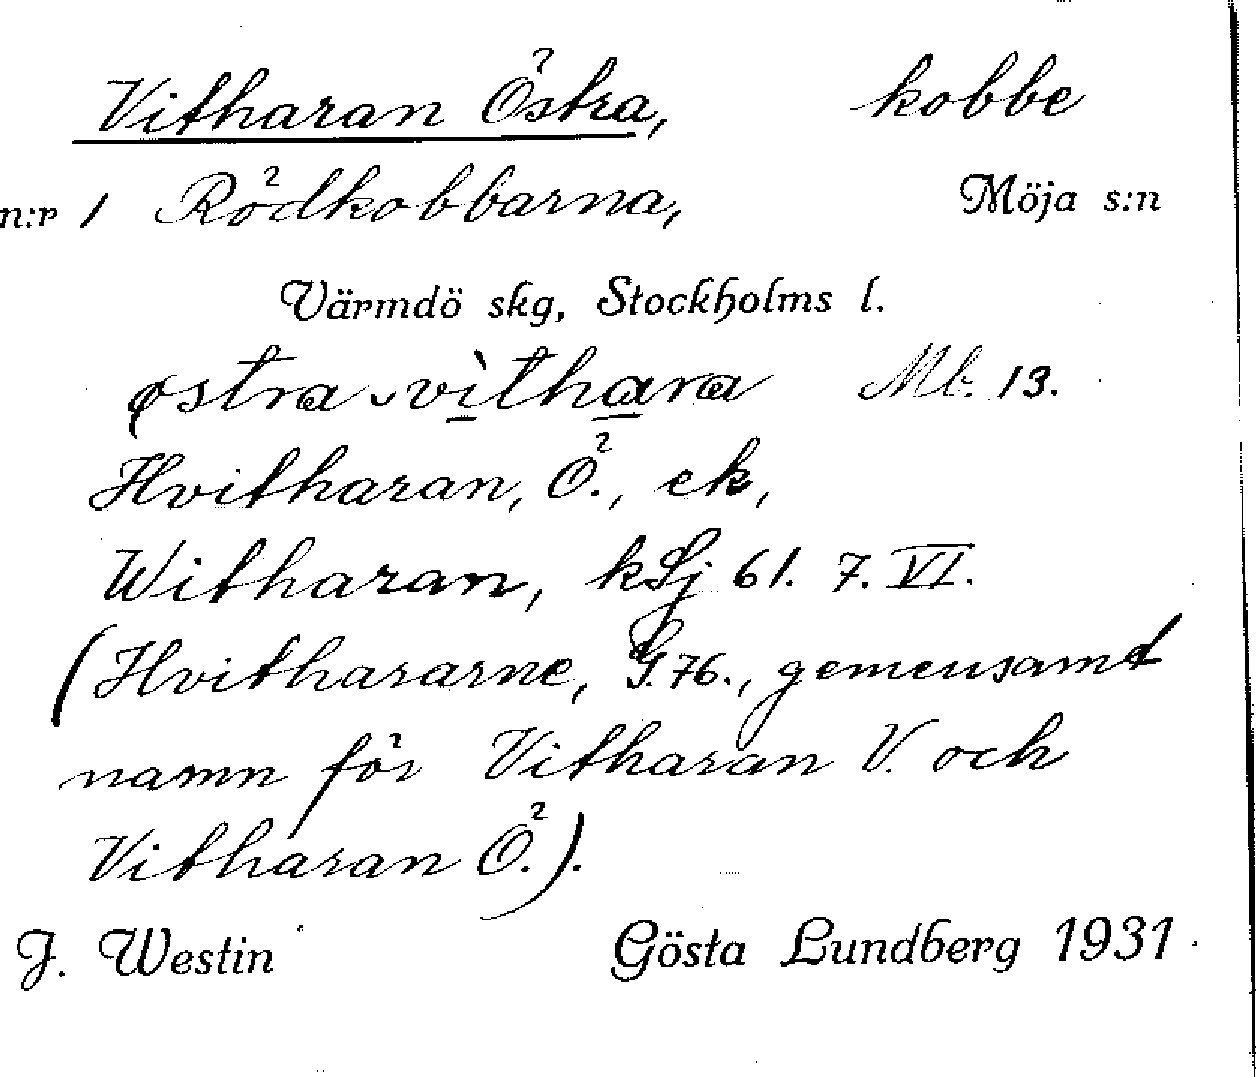 Vitharan Östra, kobbe
n:r 1 Rödkobbarna, Möja s:n
Värmdö skg, Stockholms l.
østra vìthara Mb. 13.
Hvitharan, Ö., ek,
Witharan, kSj 61. 7. VI.
(Hvithararne, G. 76., gemensamt
namn för Vitharan V. och
Vitharan Ö.).
J. Westin Gösta Lundberg 1931